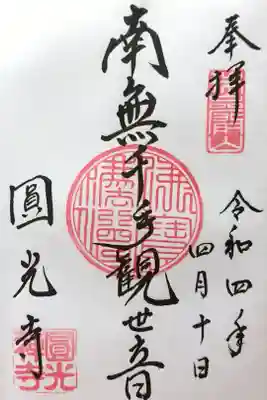 奉拝
令和四年
四月十日
南無千手観世音
圓光寺